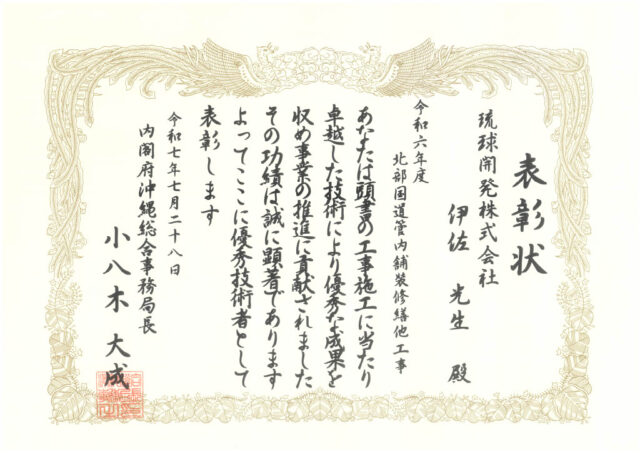 表彰状
琉球開発株式会社
伊佐 光生 殿
令和六年度
北部国道管内舗装修繕他工事
あなたは頭書の工事施工に当たり
卓越した技術により優秀な成果を
収め事業の推進に貢献されました
その功績は誠に顕著であります
よってここに優秀技術者として
表彰します
令和七年七月二十八日
内閣府沖縄総合事務局長
小八木 大成